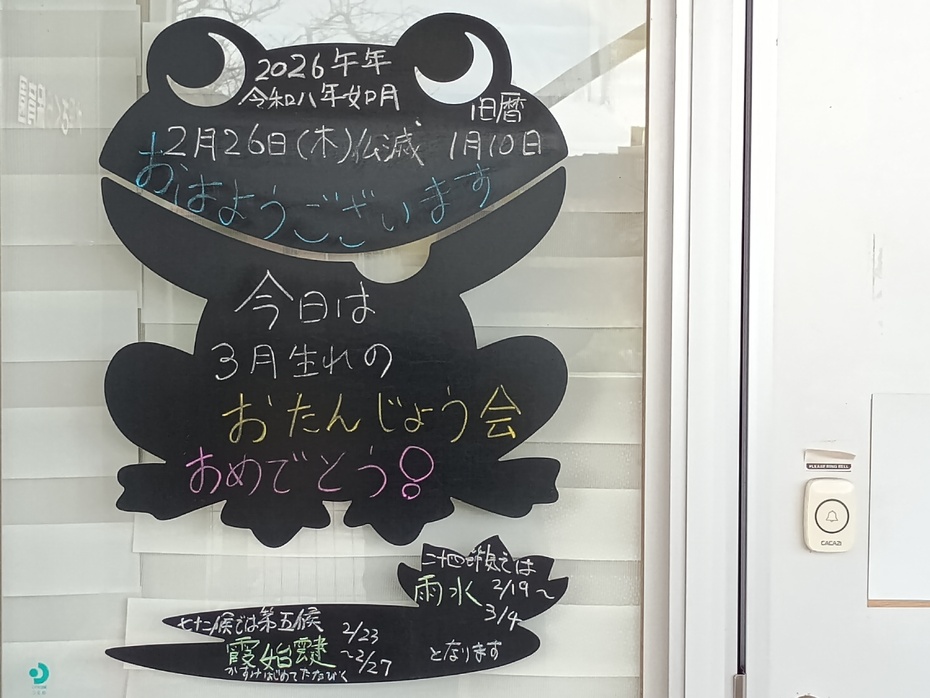 2026午年
令和八年如月
旧暦
2月26日(木)仏滅 1月10日
おはようございます
今日は
3月生れの
おたんじょう会
おめでとう!
二十四節気では
雨水 2/19~
3/4
七十二候では第五候
霞始靆 2/23
~2/27
かすみはじめてたなびく
となります
PLEASE RING BELL
CACAZI